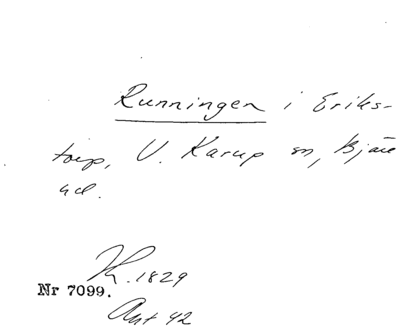 Runningen i Eriks-
torp, V. Karup sn, Bjäre
hd.
K. 1829
Nr 7099.
Akt 42